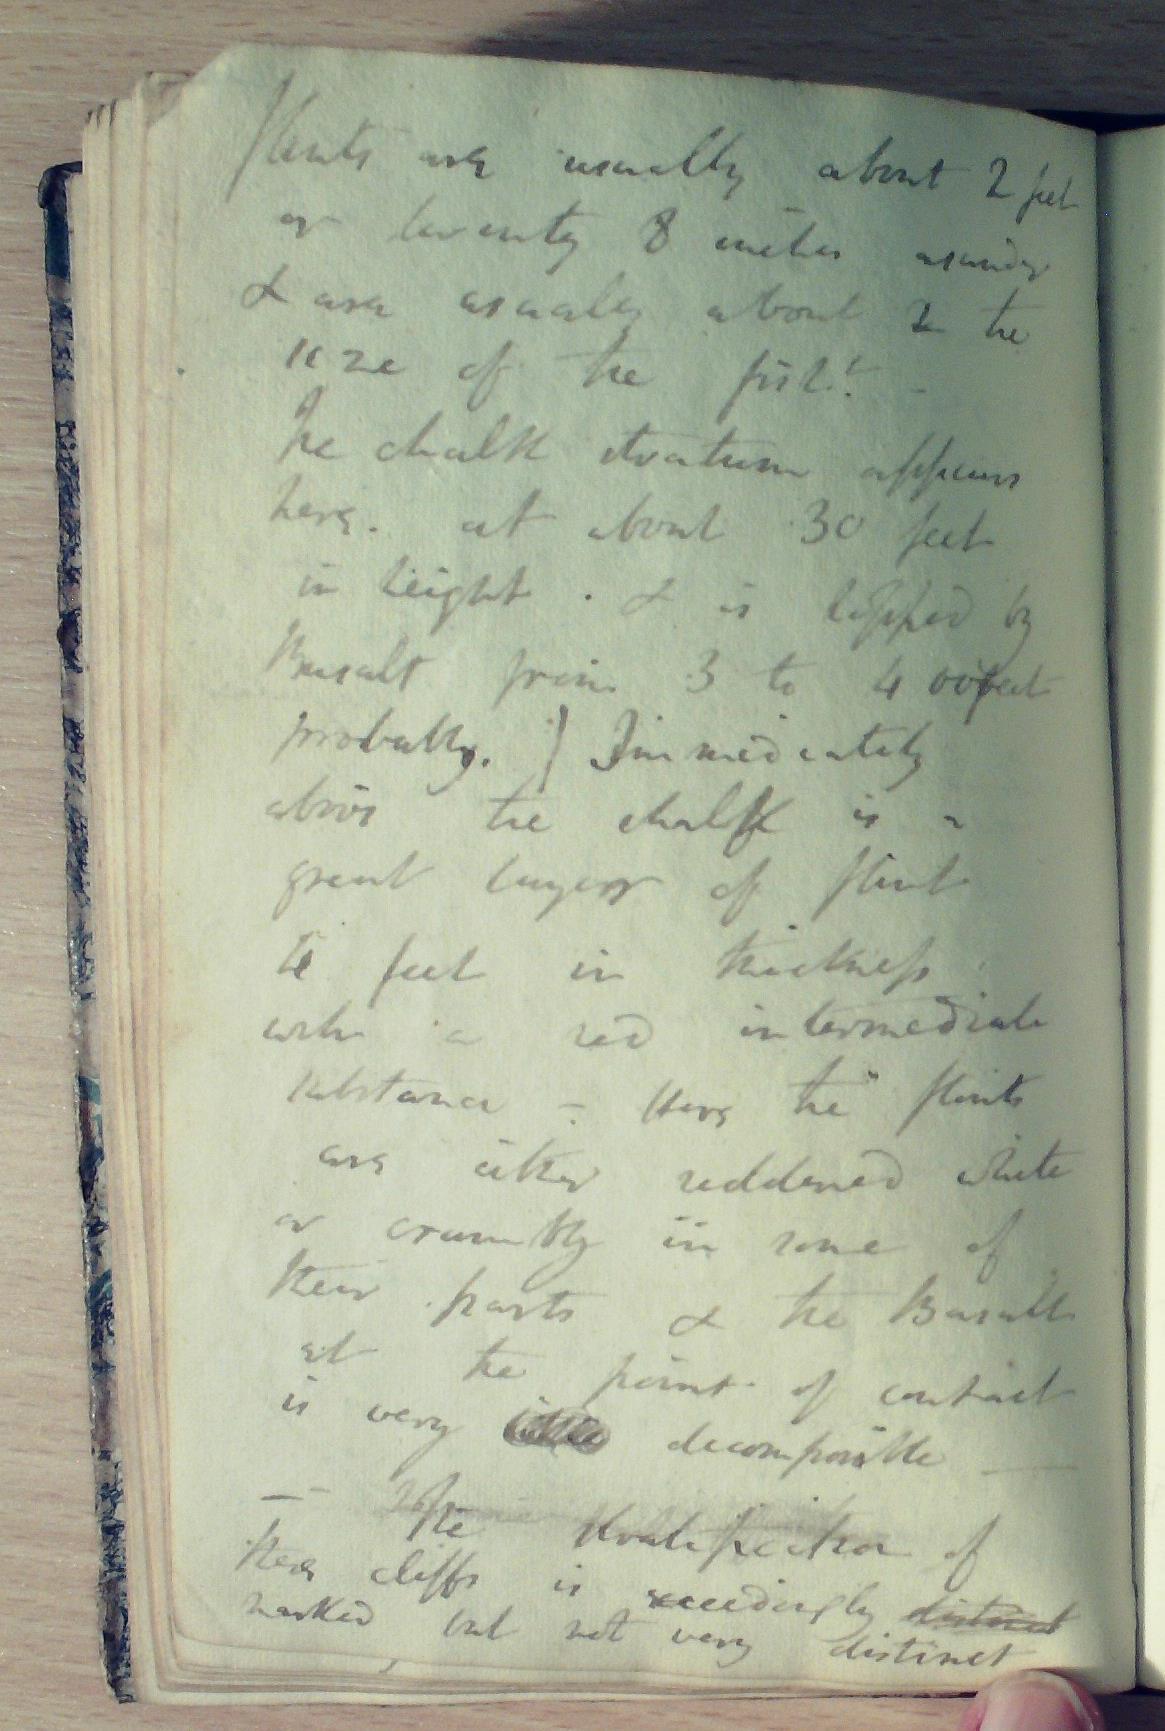 flints are usually about 2 feet
or twenty 8 inches asunder
& are usually about 2 the
size of the fist! -
The chalk stratum appears
here. at about 30 feet
in height . & is topped by
Basalt from 3 to 400 feet
probably. ) Immediately
above the chalk is a
great layer of flint
feet in thickness
with a red intermediate
substance - Here the flints
are either reddened white
or crumbly in some of
their parts & the Basalt
at the point of contact
is very decomposible —
— The stratification of
these cliffs is exceedingly distinct
marked but not very distinct